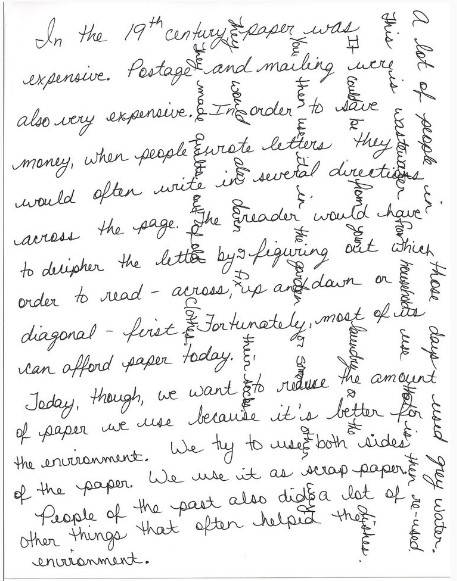 In the 19th century, paper was
expensive. Postage and mailing were
also very expensive. In order to save
money, when people wrote letters they
would often write in several directions
across the page. The reader would have
to decipher the letter by figuring out which
order to read - across, up and down or
diagonal - first. Fortunately, most of us
can afford paper today.
Today, though, we want to reduse the amount
of paper we use because it's better for
the environment. We try to use both sides
of the paper. We use it as scrap paper.
People of the past also did a lot of
other things that often helped the
environment.
A lot of people in those days used grey water.
This is wastwater from household use that is then re-used.
It could be from your laundry or the dishes.
You then use it in the garden or some other way.
They would also darn or fix their socks.
They made quilts out of old clothes.